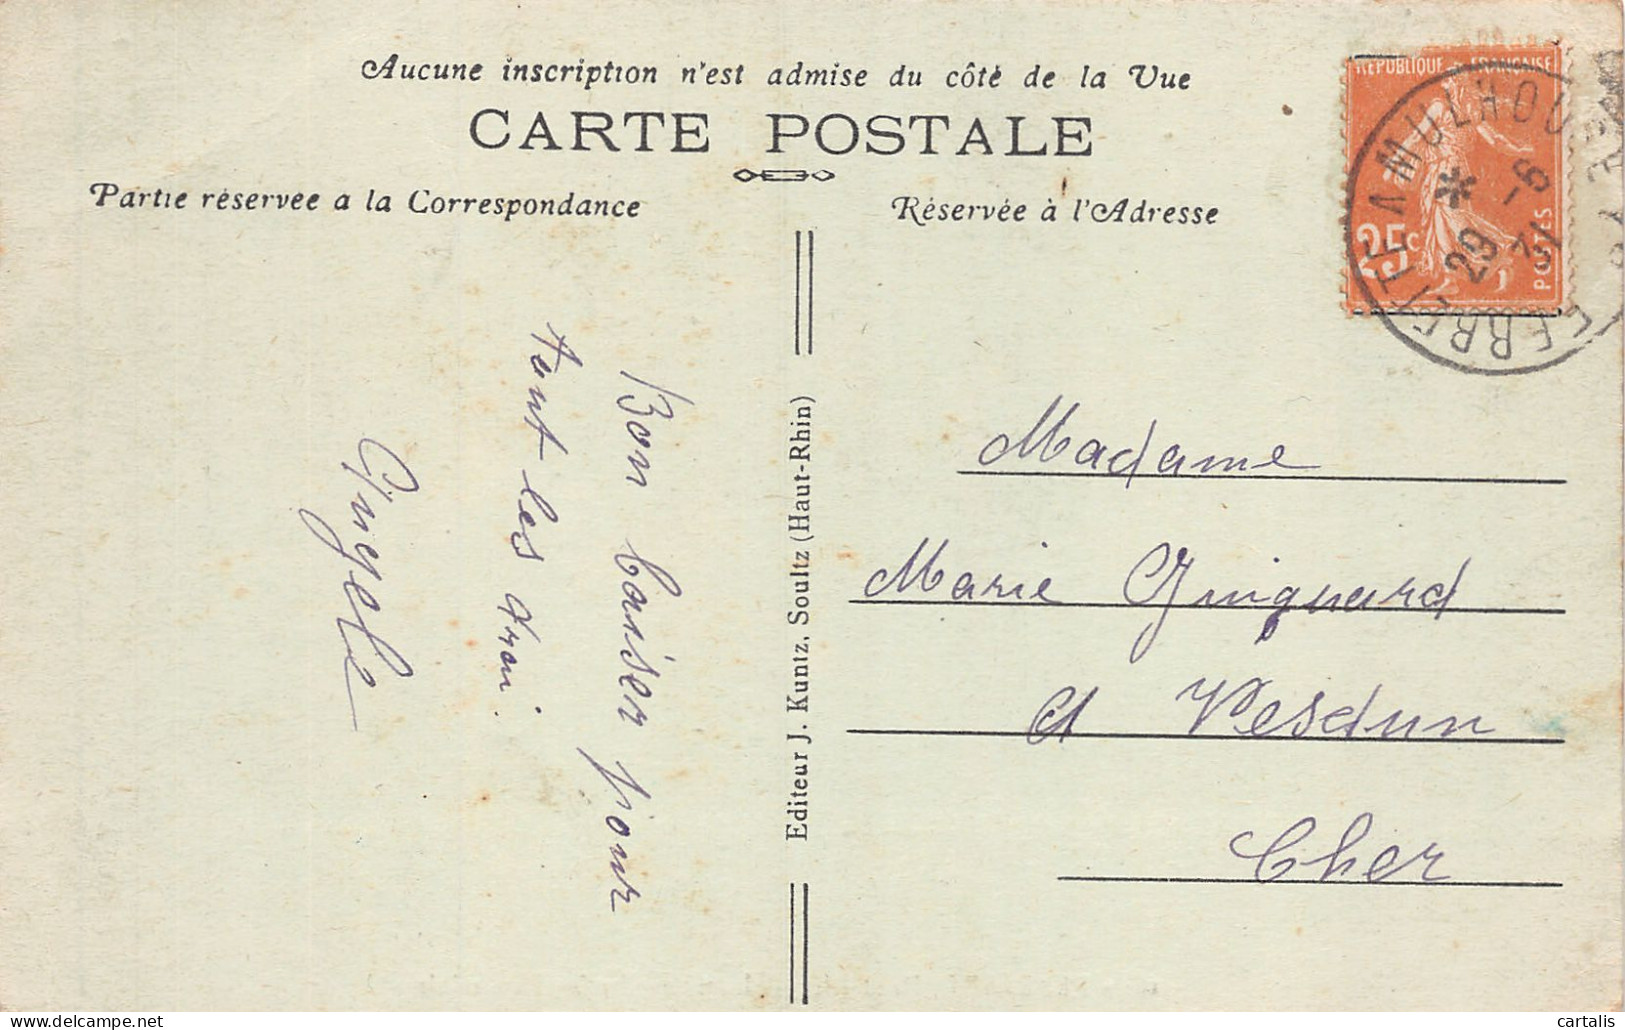 Aucune inscription n'est admise du côté de la Vue
CARTE POSTALE
Partie réservée a la Correspondance
Réservée à l'Adresse
REPUBLIQUE FRANÇAISE
25c
POSTES
MULHOU
29 -6
31
Bon baiser pour
tout les
Angele
Editeur J. Kuntz, Soultz (Haut-Rhin)
Madame
Marie Guignard
a Vesdun
Cher
delcampe.net
cartalis